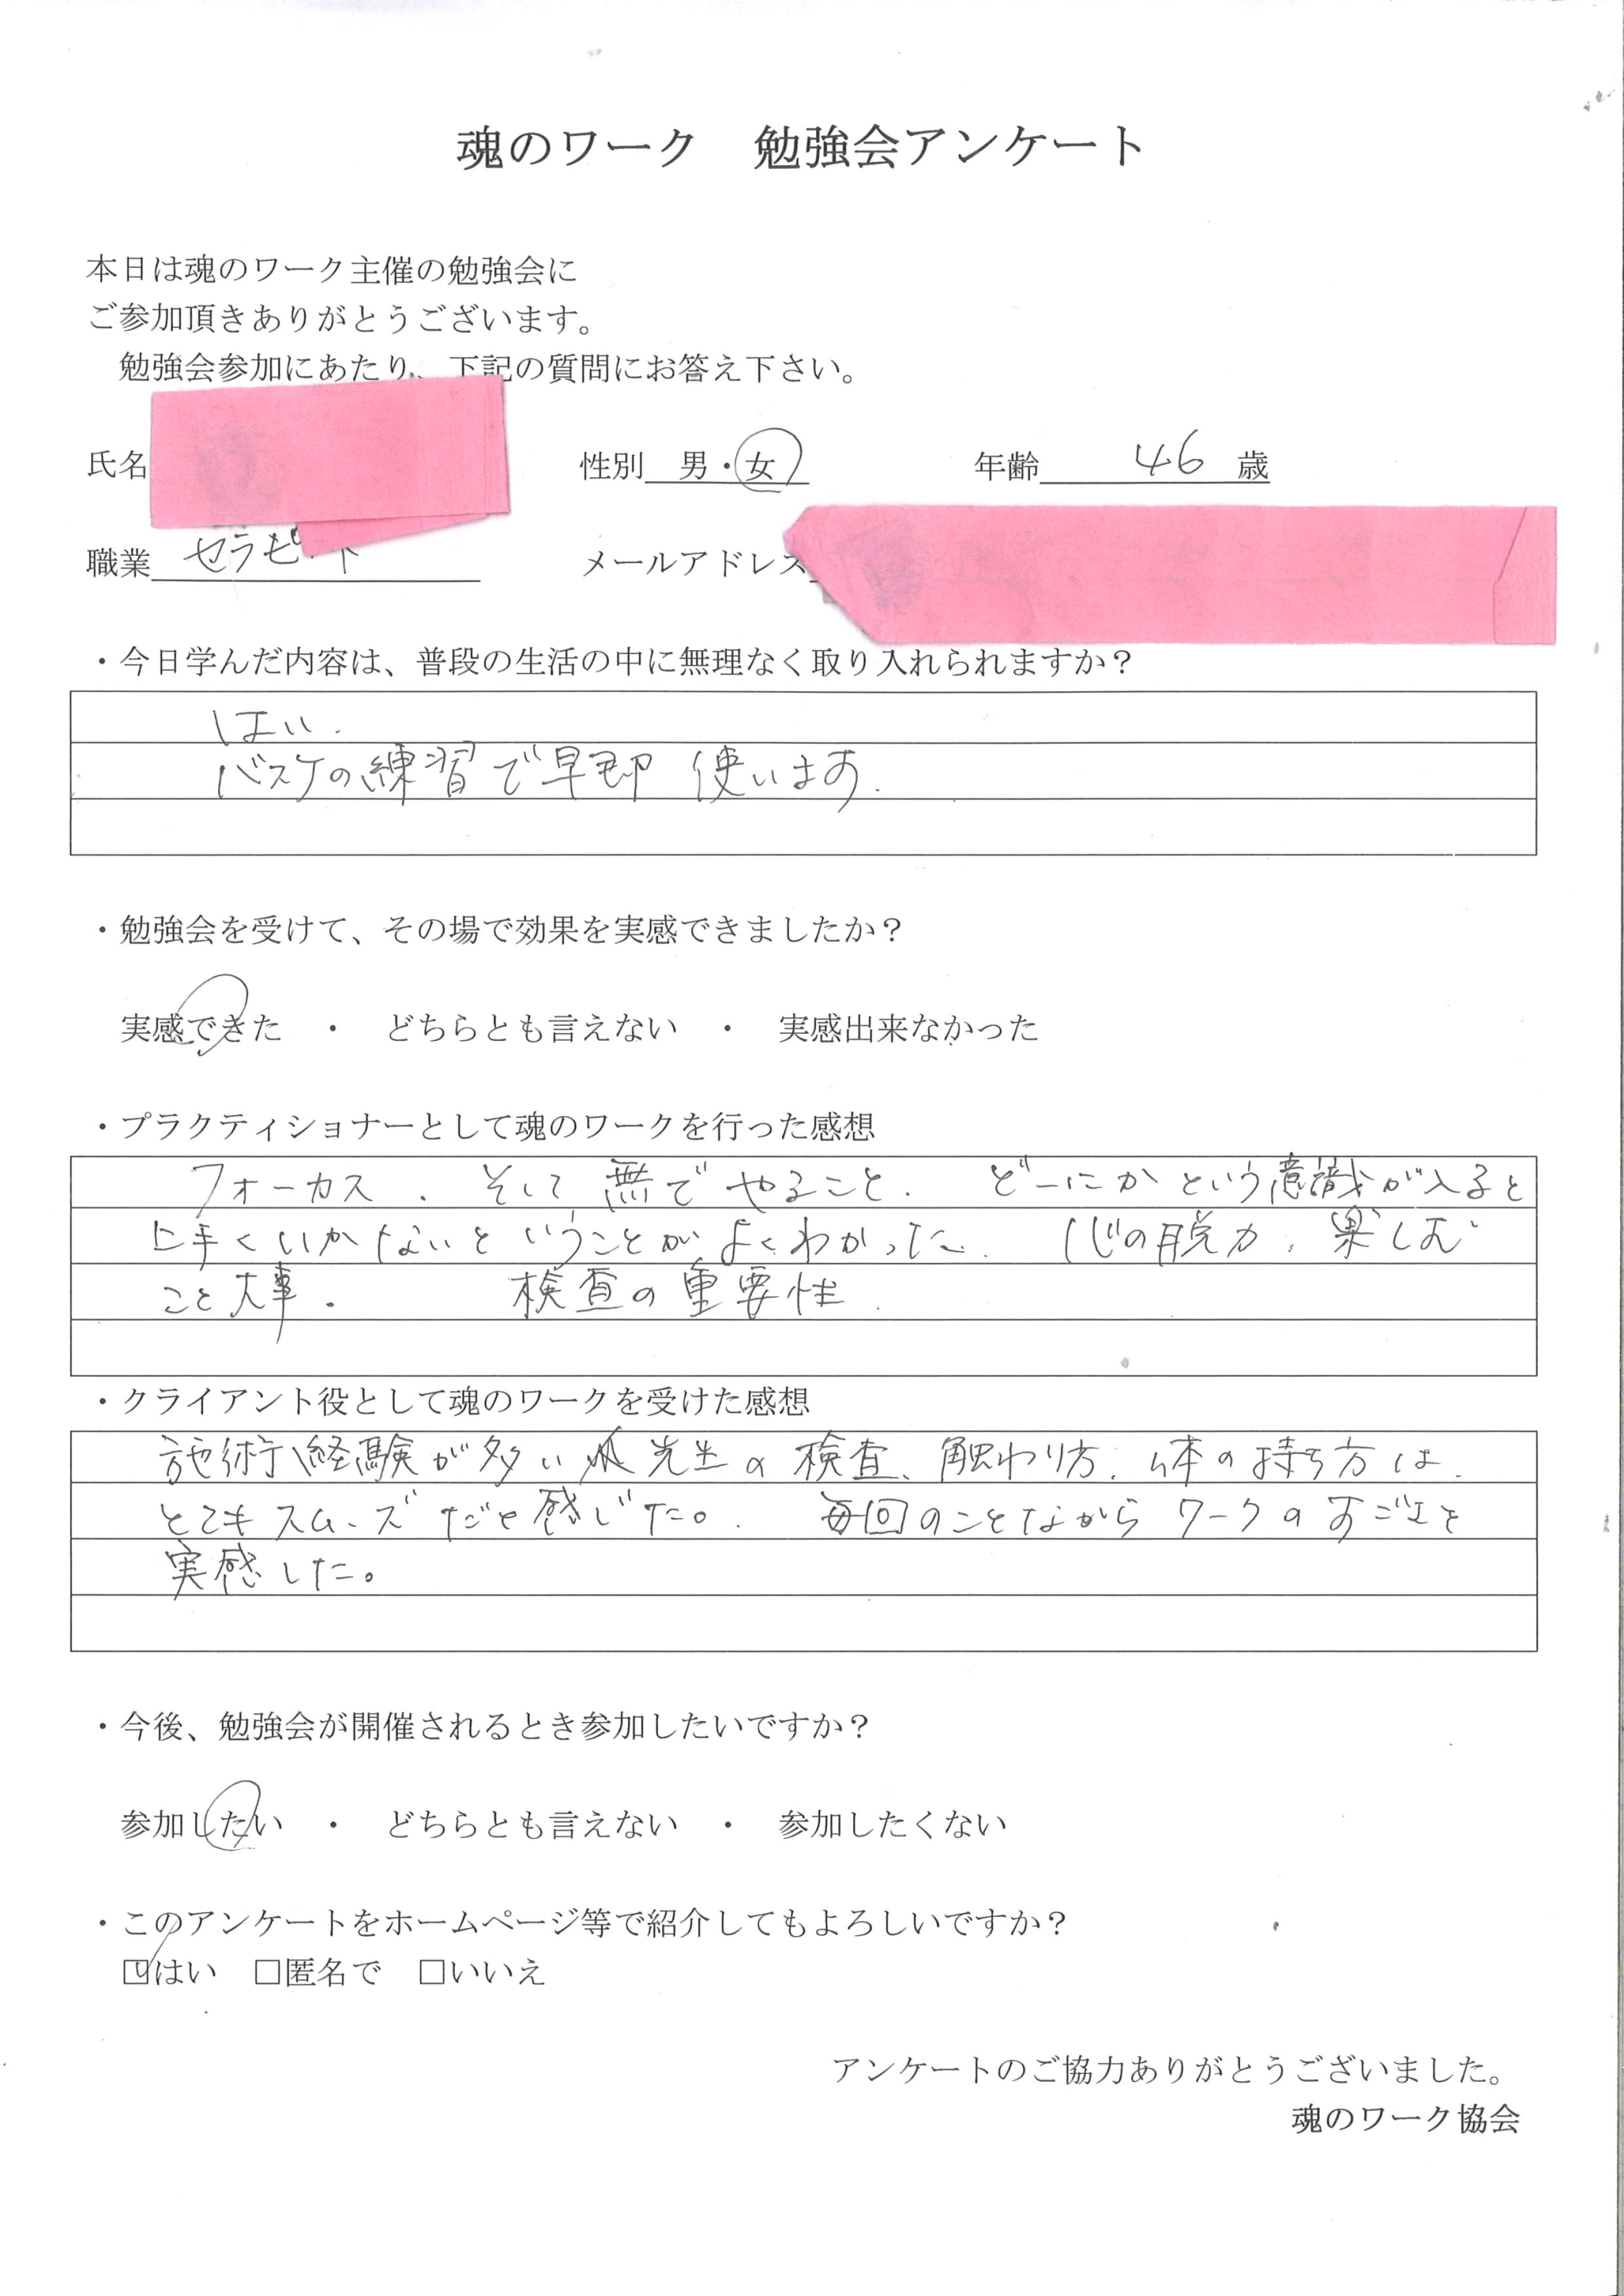 魂のワーク　勉強会アンケート
本日は魂のワーク主催の勉強会に
ご参加頂きありがとうございます。
勉強会参加にあたり、下記の質問にお答え下さい。
氏名　性別　男・女　年齢　46　歳
職業　セラピ　ト　メールアドレス
・今日学んだ内容は、普段の生活の中に無理なく取り入れられますか？
はい.
バスケの練習で早即 使います.
・勉強会を受けて、その場で効果を実感できましたか？
実感できた　・　どちらとも言えない　・　実感出来なかった
・プラクティショナーとして魂のワークを行った感想
フォーカス. そして 無で やること. どーにか という意識が入ると
上手くいかないと いうことが よくわかった. 心の脱力, 楽しむ
こと大事. 検査の重要性.
・クライアント役として魂のワークを受けた感想
施術経験が多い 先生の 検査、触わり方, 体の持ち方は、
とてもスムーズだと感じた。. 毎回のことながら ワークのすごさを
実感した。
・今後、勉強会が開催されるとき参加したいですか？
参加したい　・　どちらとも言えない　・　参加したくない
・このアンケートをホームページ等で紹介してもよろしいですか？
☑はい　□匿名で　□いいえ
アンケートのご協力ありがとうございました。
魂のワーク協会